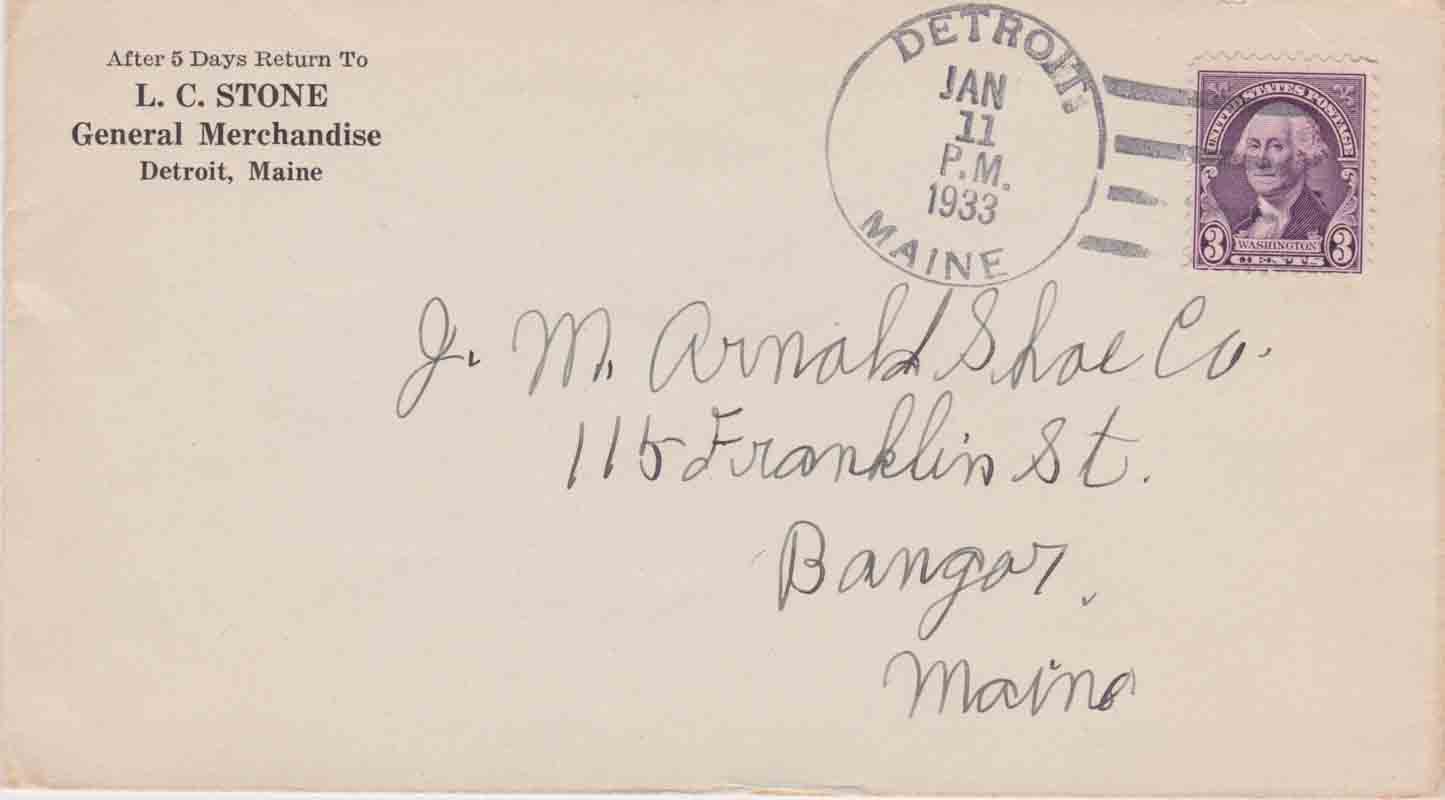 After 5 Days Return To
L. C. STONE
General Merchandise
Detroit, Maine
DETROIT.
JAN
11
P.M.
1933
MAINE
UNITED STATES POSTAGE
3 WASHINGTON 3
CENTS
J. M. Arnold Shoe Co.
115 Franklin St.
Bangor,
Maine